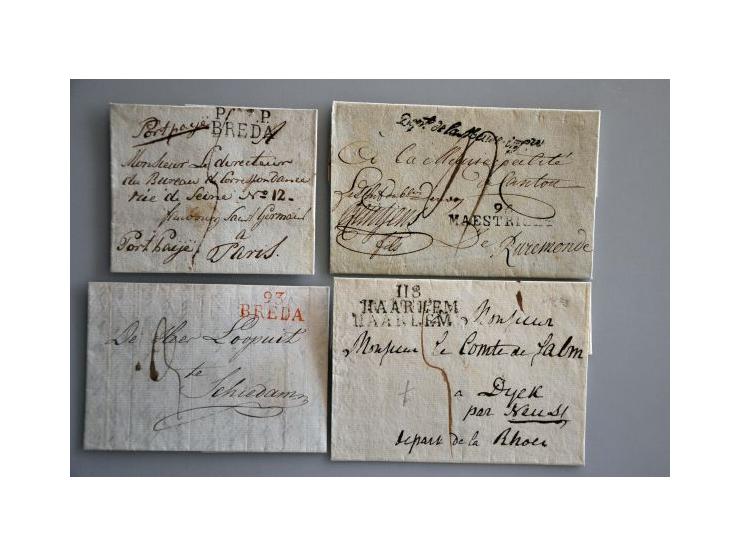 Port payé
P. P. P.
BREDA
Monsieur Le directeur
du Bureau de Correspondance
rue de Seine No 12
faubourg Saint Germain
à
Port Payé Paris.
Dept. de la Meuse infre
à la Municipalité
Canton
MAESTRICHT
de Ruremonde
fils
93
BREDA
De Heer Loopuit
te
Schiedam
118
HAARLEM
HAARLEM
Monsieur
Monsieur le Comte de Salm
a Dyck
par Neuss
depart de la Rhoer